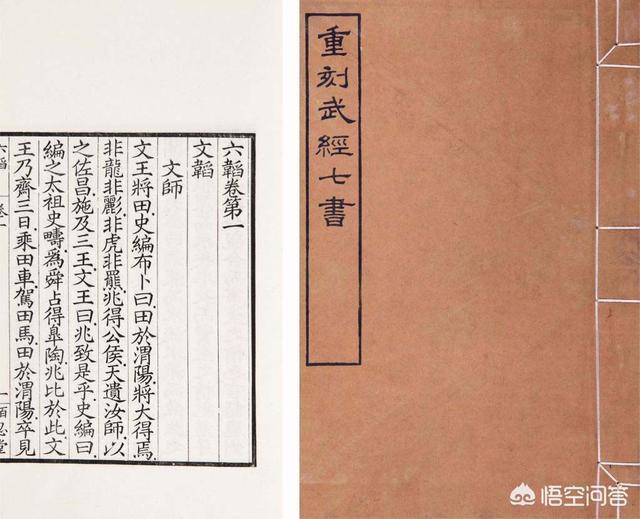 六韜卷第一
文韜
文師
文王將田史編布卜曰田於渭陽將大得焉
非龍非彲非虎非羆兆得公侯天遺汝師以
之佐昌施及三王文王曰兆致是乎史編曰
編之太祖史疇爲舜占得皐陶兆比於此文
王乃齊三日乘田車駕田馬田於渭陽卒見
重刻武經七書
悟空问答